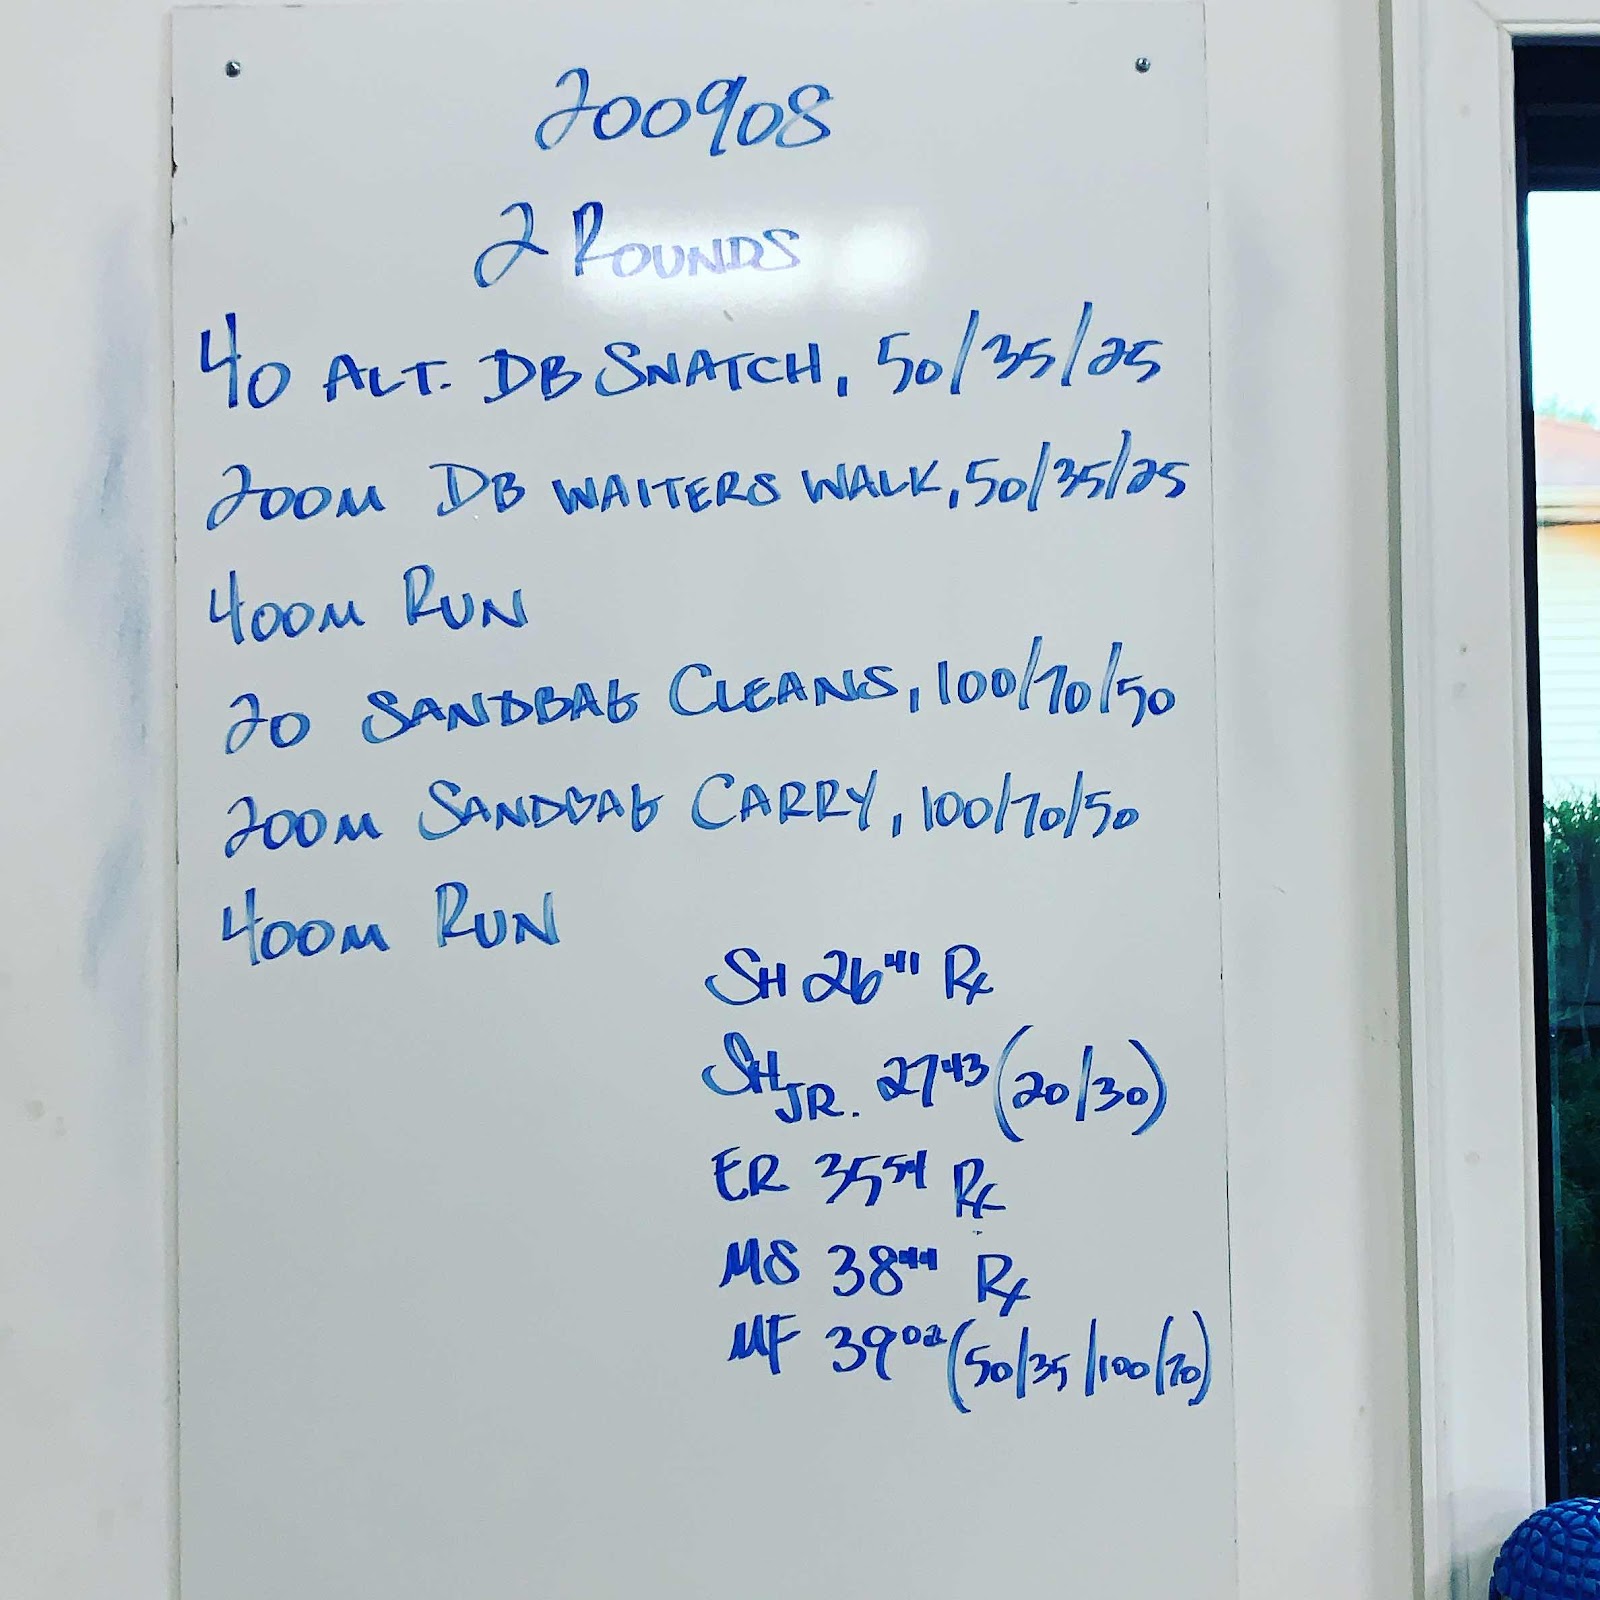 200908
2 ROUNDS
40 ALT. DB SNATCH, 50/35/25
200M DB WAITERS WALK, 50/35/25
400M RUN
20 SANDBAG CLEANS, 100/70/50
200M SANDBAG CARRY, 100/70/50
400M RUN
SH 26 41 Rx
SH JR. 27 43 (20/30)
ER 35 54 Rx
MS 38 44 Rx
MF 39 02 (50/35/100/70)